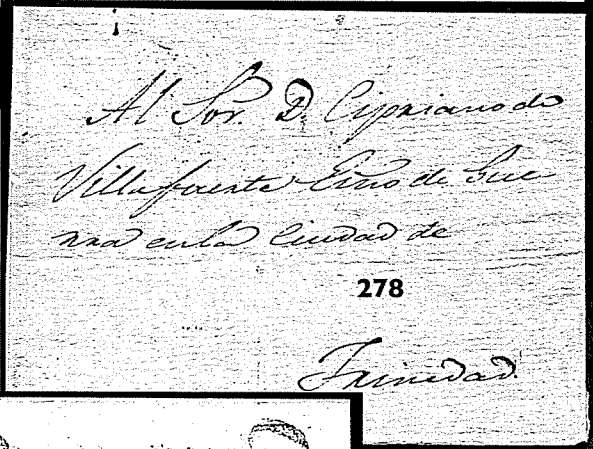 Al Sor. D. Cipriano de
Villafuerte Esno de Gue
rra en la Ciudad de
278
Trinidad.